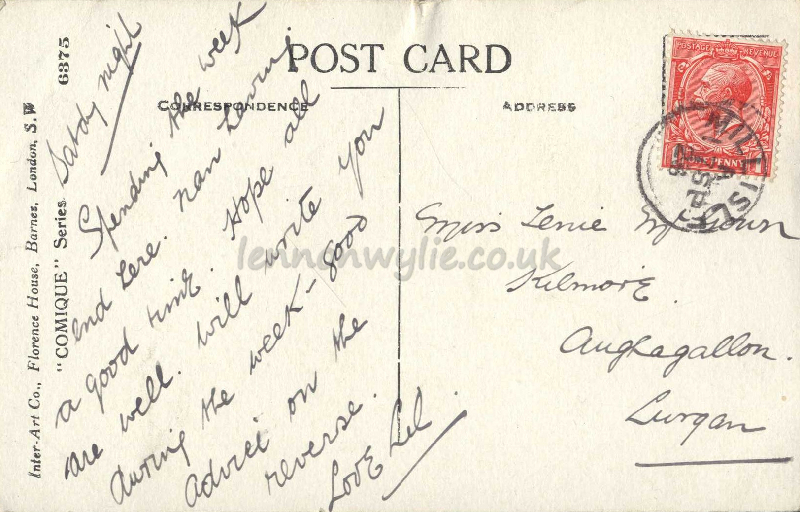 POST CARD
CORRESPONDENCE
ADDRESS
Inter-Art Co., Florence House, Barnes, London, S.W
"COMIQUE" Series 6375
Satdy night
Spending the week
end here. nan having
a good time. Hope all
are well. will write you
during the week - good
advice on the
reverse.
Love Lel.
Miss Lenie McKeown
Kilmore.
Aughagallon.
Lurgan
POSTAGE REVENUE
PENNY
MILLISLE
lennonwylie.co.uk